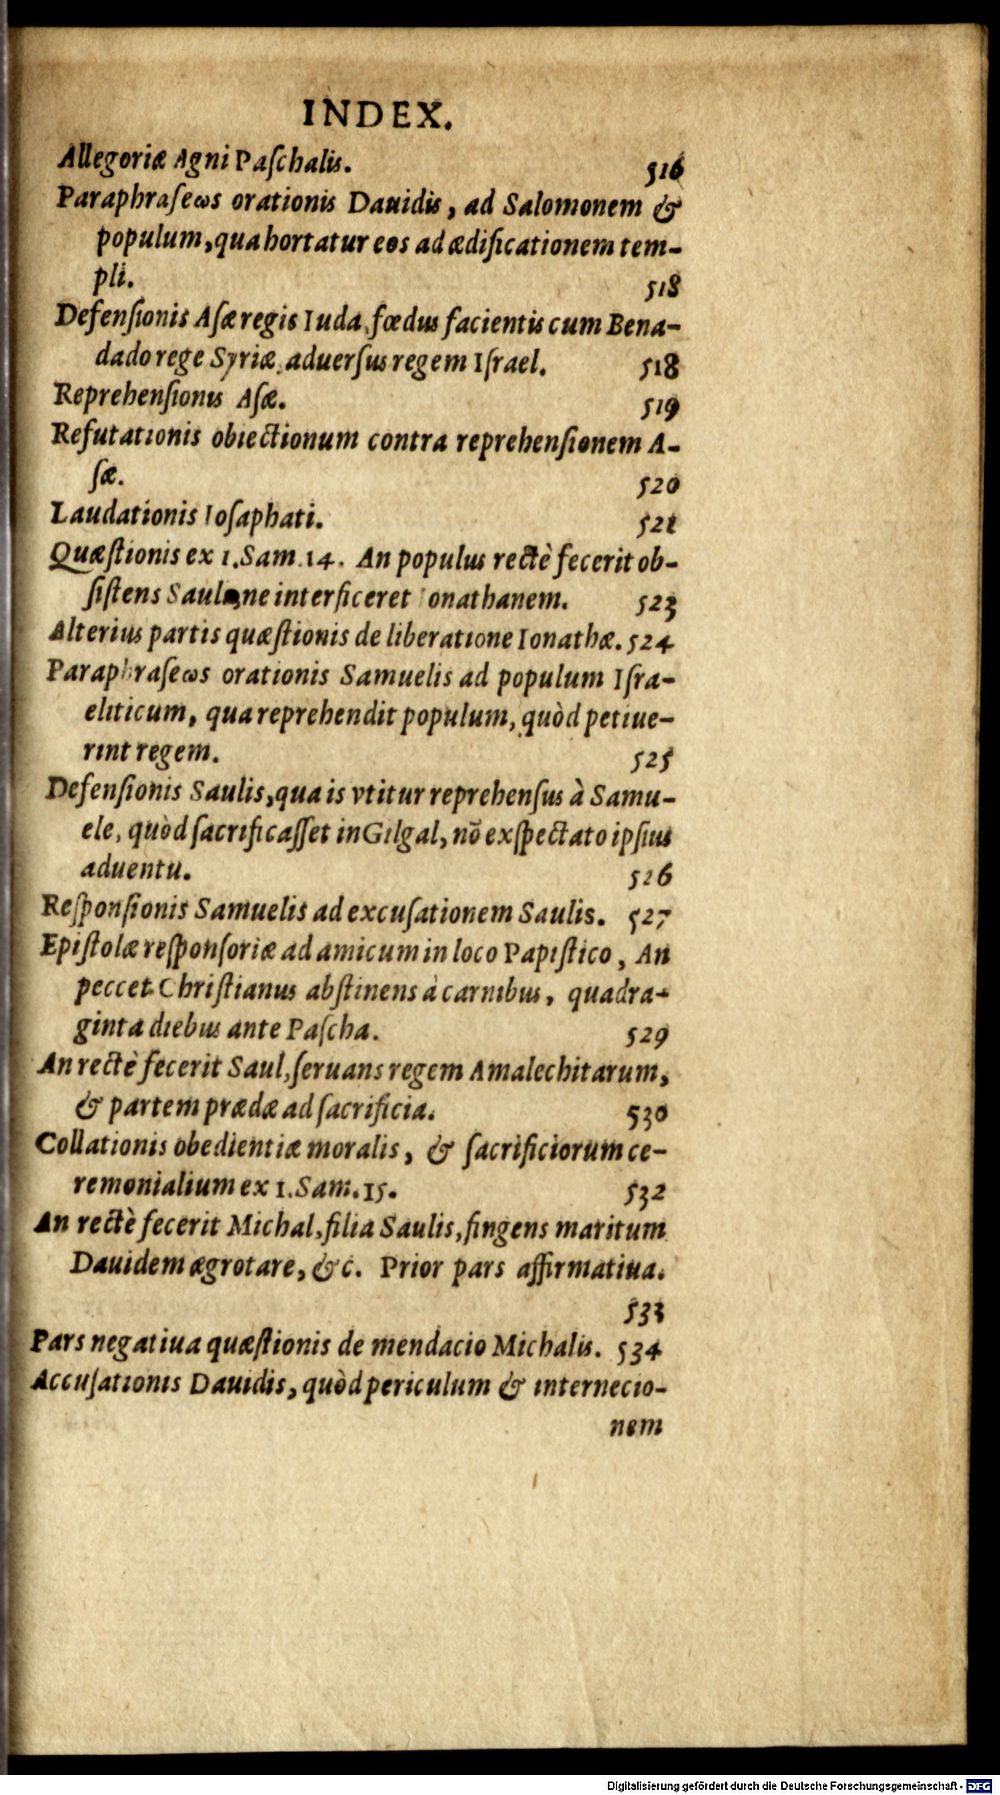 INDEX.
Allegoriæ Agni Paſchalis. 516
Paraphraſeωs orationis Dauidis, ad Salomonem &
populum, qua hortatur eos ad ædificationem tem-
pli. 518
Defenſionis Aſæ regis Iuda, fœdus facientis cum Bena-
dado rege Syriæ, aduerſus regem Iſrael. 518
Reprehenſionis Aſæ. 519
Refutationis obiectionum contra reprehenſionem A-
ſæ. 520
Laudationis Ioſaphati. 521
Quæſtionis ex 1. Sam. 14. An populus rectè fecerit ob-
ſiſtens Saul, ne interficeret Ionathanem. 523
Alterius partis quæſtionis de liberatione Ionathæ. 524
Paraphraſeωs orationis Samuelis ad populum Iſra-
eliticum, qua reprehendit populum, quòd petiue-
rint regem. 525
Defenſionis Saulis, qua is vtitur reprehenſus à Samu-
ele, quòd ſacrificaſſet in Gilgal, nō exſpectato ipſius
aduentu. 526
Reſponſionis Samuelis ad excuſationem Saulis. 527
Epiſtolæ reſponſoriæ ad amicum in loco Papiſtico, An
peccet Chriſtianus abſtinens à carnibus, quadra-
ginta diebus ante Paſcha. 529
An rectè fecerit Saul, ſeruans regem Amalechitarum,
& partem prædæ ad ſacrificia. 530
Collationis obedientiæ moralis, & ſacrificiorum ce-
remonialium ex 1. Sam. 15. 532
An rectè fecerit Michal, filia Saulis, fingens maritum
Dauidem ægrotare, &c. Prior pars affirmatiua.
533
Pars negatiua quæſtionis de mendacio Michalis. 534
Accuſationis Dauidis, quòd periculum & internecio-
nem
Digitalisierung gefördert durch die Deutsche Forschungsgemeinschaft - DFG